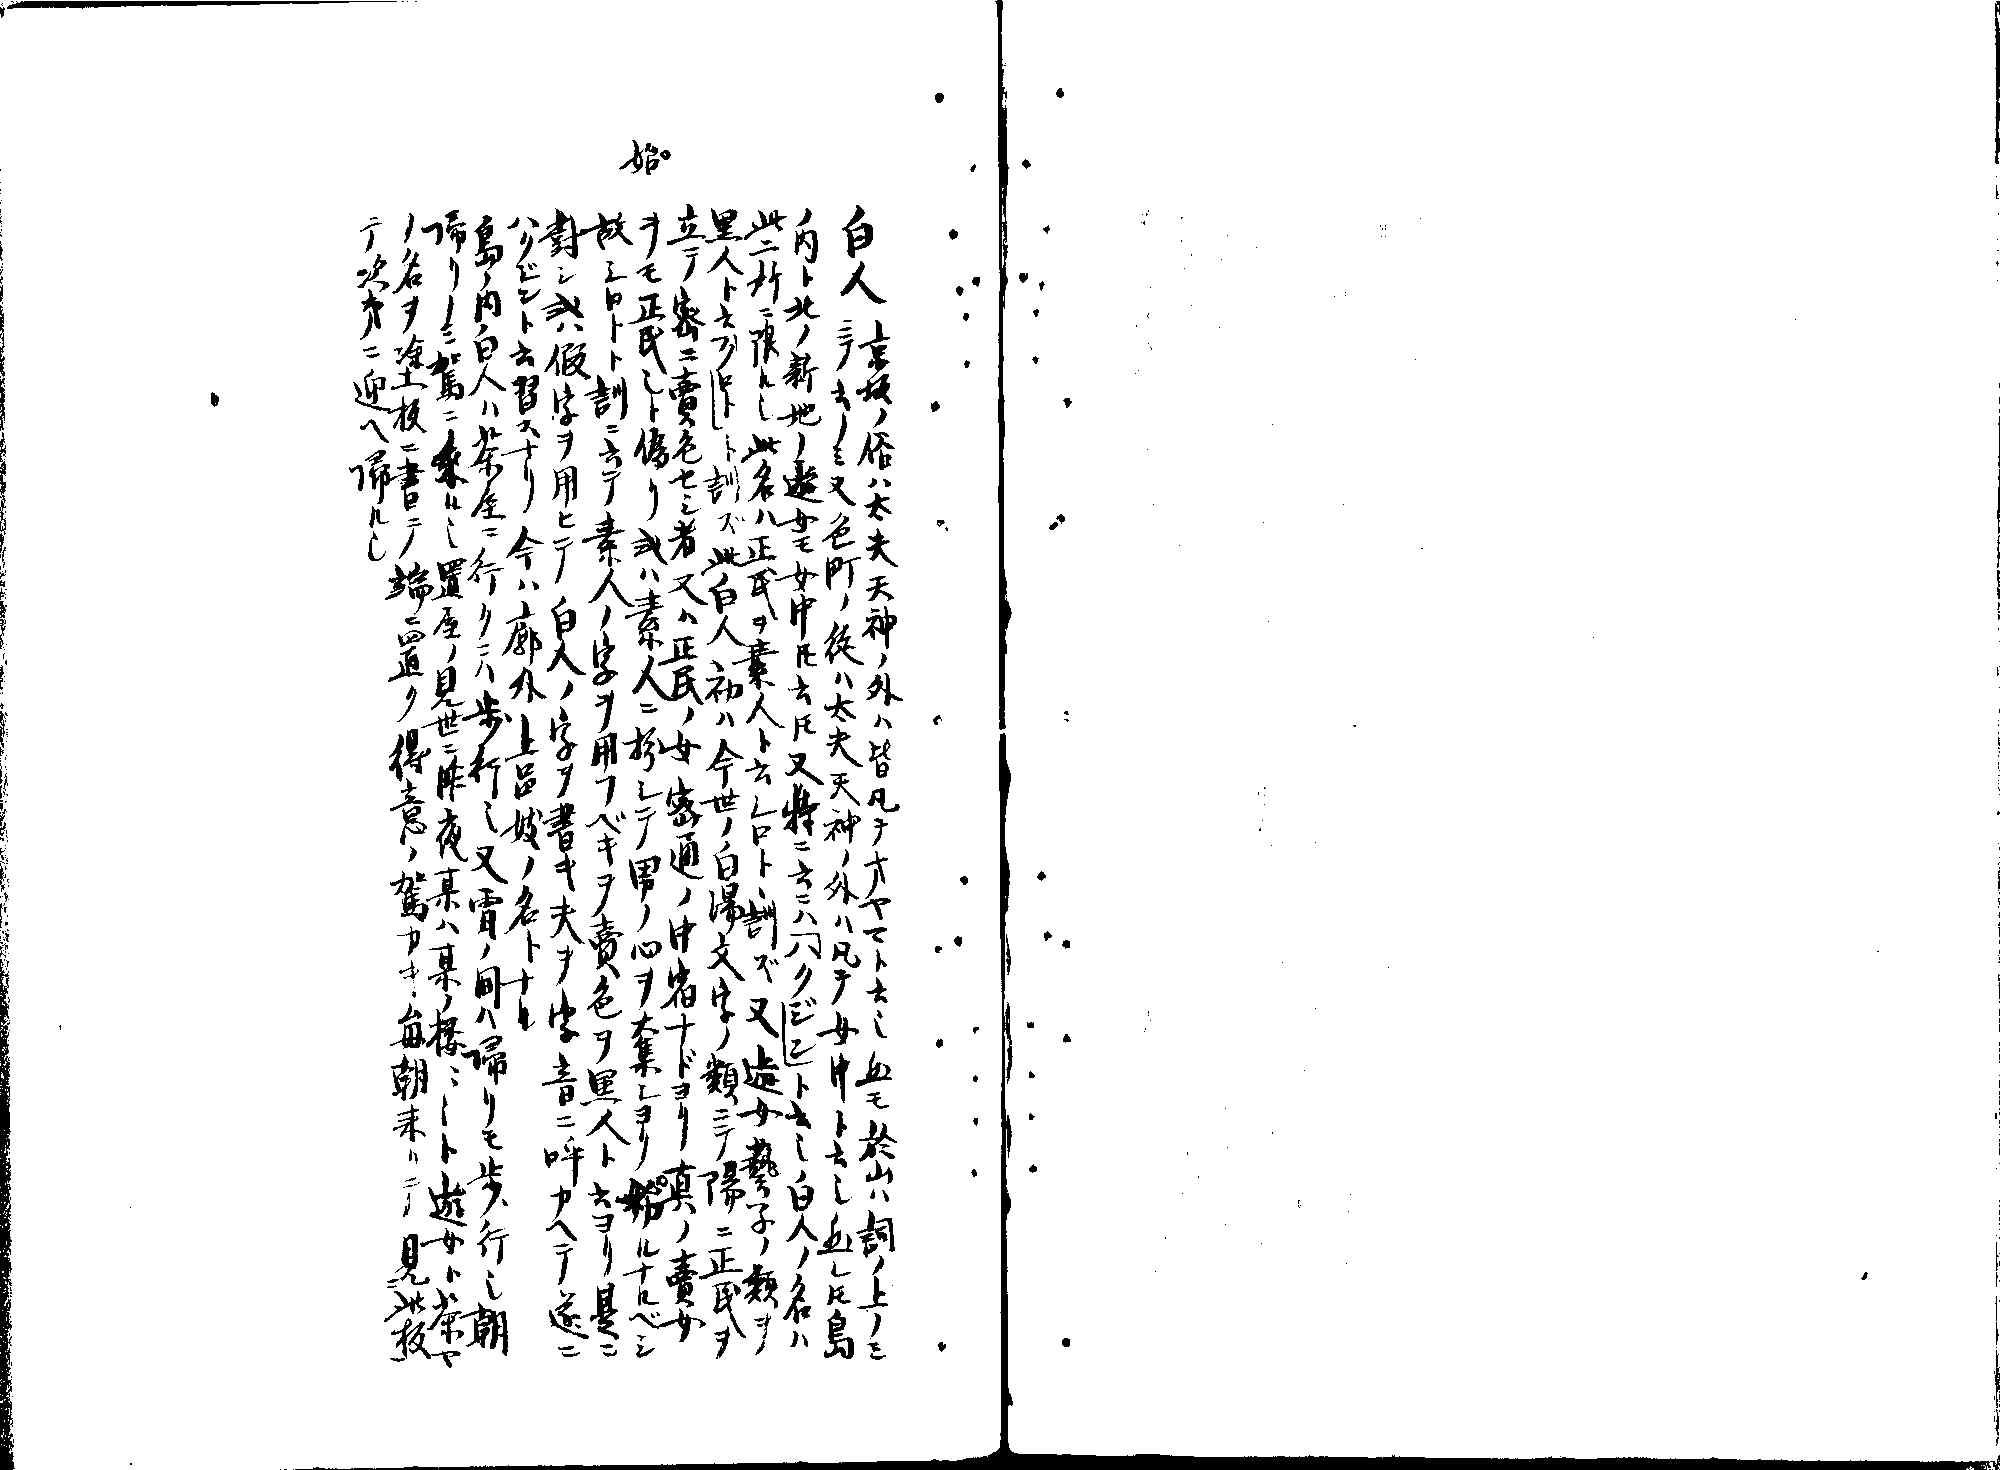 始
白人 京坂ノ俗ハ太夫天神ノ外ハ皆凡テオヤマト云也 然モ於山ハ詞ノ上ノミ
ニテ云ノミ又色町ノ徒ハ太夫天神ノ外ハ凡テ女中ト云也 然レ𪜈島
ノ内ト北ノ新地ノ遊女モ女中𪜈云𪜈又特ニ云ニハハクジント云也白人ノ名ハ
此二所ニ限ル也此名ハ正民ヲ素人ト云シロトト訓ズ又遊女藝子ノ類ヲ
黒人ト云クロトト訓ズ此白人初ハ今世ノ白湯文字ノ類ニテ陽ニ正民ヲ
立テ密ニ賣色セシ者又ハ正民ノ女密通ノ中宿ナドヨリ真ノ賣女
ヲモ正民也ト偽リ或ハ素人ニ扮シテ男ノ心ヲ奪シヨリ始ルナルベシ
故シロトト訓ニ云テ素人ノ字ヲ用フベキヲ賣色ヲ黒人ト云ヨリ是ニ
對シ或ハ假字ヲ用ヒテ白人ノ字ヲ書キ夫ヲ字音ニ呼カヘテ遂ニ
ハクジント云習スナリ今ハ廓外上品妓ノ名トナル
島ノ内ノ白人ハ茶屋ニ行クニハ歩行也又宵ノ間ハ帰リモ歩行也朝
帰リノミ駕ニ乗ル也置屋ノ見世ニ昨夜某ハ某ノ楼ニ也ト遊女ト茶ヤ
ノ名ヲ塗板ニ書テ端ニ置ク得意ノ駕カキ毎朝来リテ見此板
テ次第ニ迎ヘ帰ル也